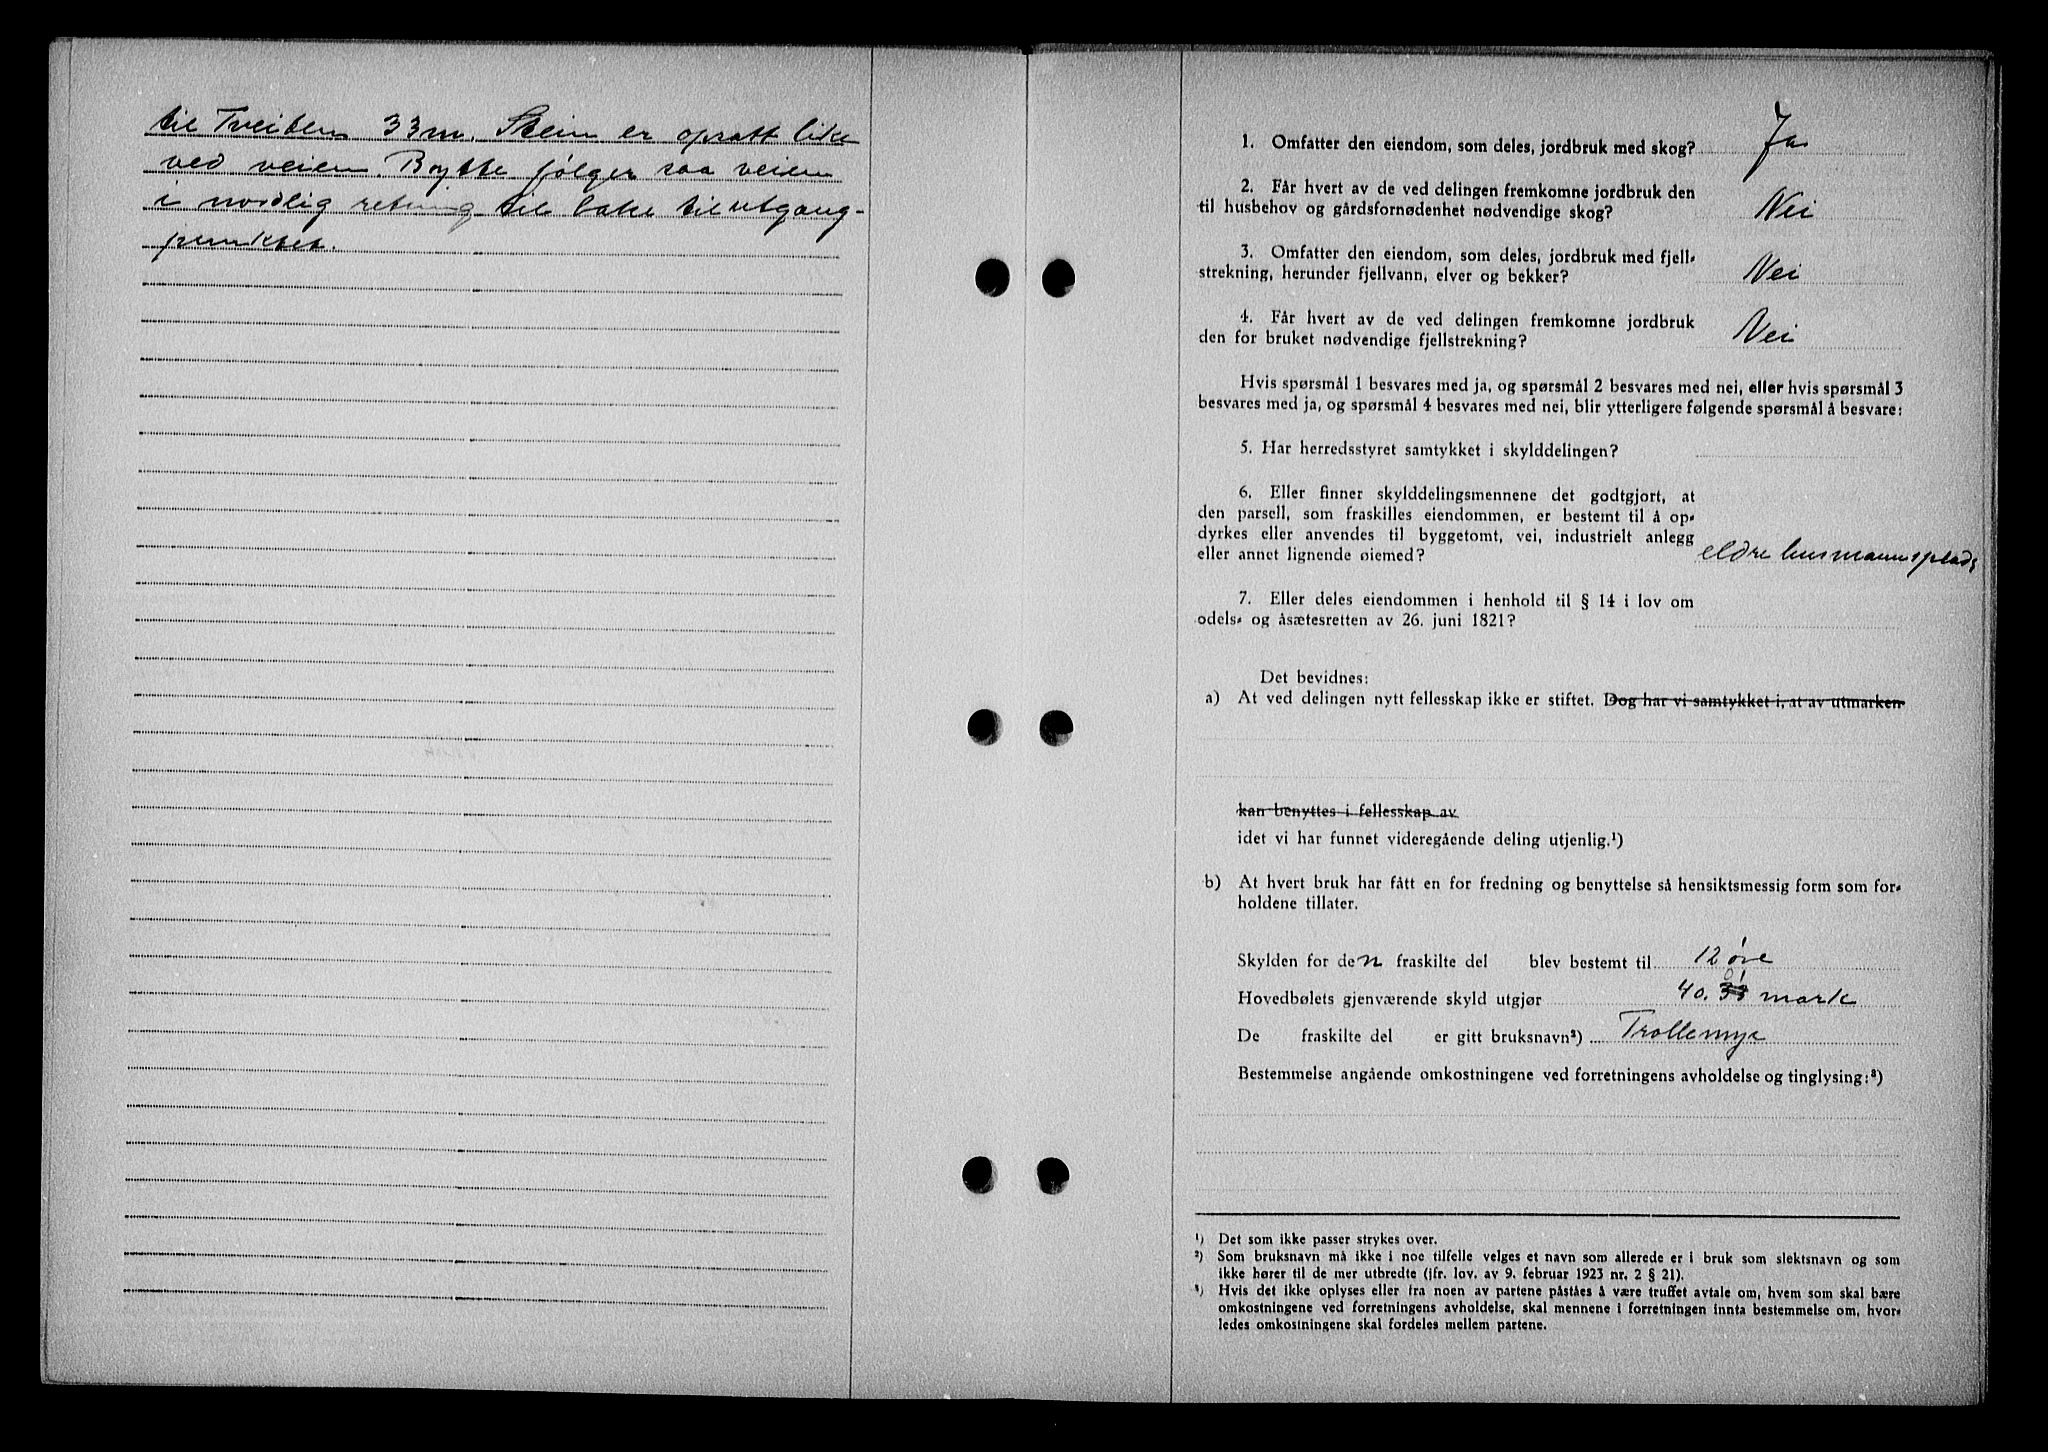 til Tveiten 33 m. Stein er opsatt like
ved veien. Bytte følger saa veien
i nordlig retning til bake til utgang-
punktet.
1. Omfatter den eiendom, som deles, jordbruk med skog? Ja
2. Får hvert av de ved delingen fremkomne jordbruk den
til husbehov og gårdsfornødenhet nødvendige skog? Nei
3. Omfatter den eiendom, som deles, jordbruk med fjell-
strekning, herunder fjellvann, elver og bekker? Nei
4. Får hvert av de ved delingen fremkomne jordbruk
den for bruket nødvendige fjellstrekning? Nei
Hvis spørsmål 1 besvares med ja, og spørsmål 2 besvares med nei, eller hvis spørsmål 3
besvares med ja, og spørsmål 4 besvares med nei, blir ytterligere følgende spørsmål å besvare:
5. Har herredsstyret samtykket i skylddelingen?
6. Eller finner skylddelingsmennene det godtgjort, at
den parsell, som fraskilles eiendommen, er bestemt til å op-
dyrkes eller anvendes til byggetomt, vei, industrielt anlegg
eller annet lignende øiemed? eldre husmannsplads
7. Eller deles eiendommen i henhold til § 14 i lov om
odels- og åsætesretten av 26. juni 1821?
Det bevidnes:
a) At ved delingen nytt fellesskap ikke er stiftet. Dog har vi samtykket i, at av utmarken
kan benyttes i fellesskap av
idet vi har funnet videregående deling utjenlig.¹)
b) At hvert bruk har fått en for fredning og benyttelse så hensiktsmessig form som for-
holdene tillater.
Skylden for den fraskilte del blev bestemt til 12 øre
Hovedbølets gjenværende skyld utgjør 40. mark
De fraskilte del er gitt bruksnavn²) Trollemyr
Bestemmelse angående omkostningene ved forretningens avholdelse og tinglysing:³)
¹) Det som ikke passer strykes over.
²) Som bruksnavn må ikke i noe tilfelle velges et navn som allerede er i bruk som slektsnavn og som
ikke hører til de mer utbredte (jfr. lov. av 9. februar 1923 nr. 2 § 21).
³) Hvis det ikke oplyses eller fra noen av partene påståes å være truffet avtale om, hvem som skal bære
omkostningene ved forretningens avholdelse, skal mennene i forretningen innta bestemmelse om, hvor-
ledes omkostningene skal fordeles mellem partene.